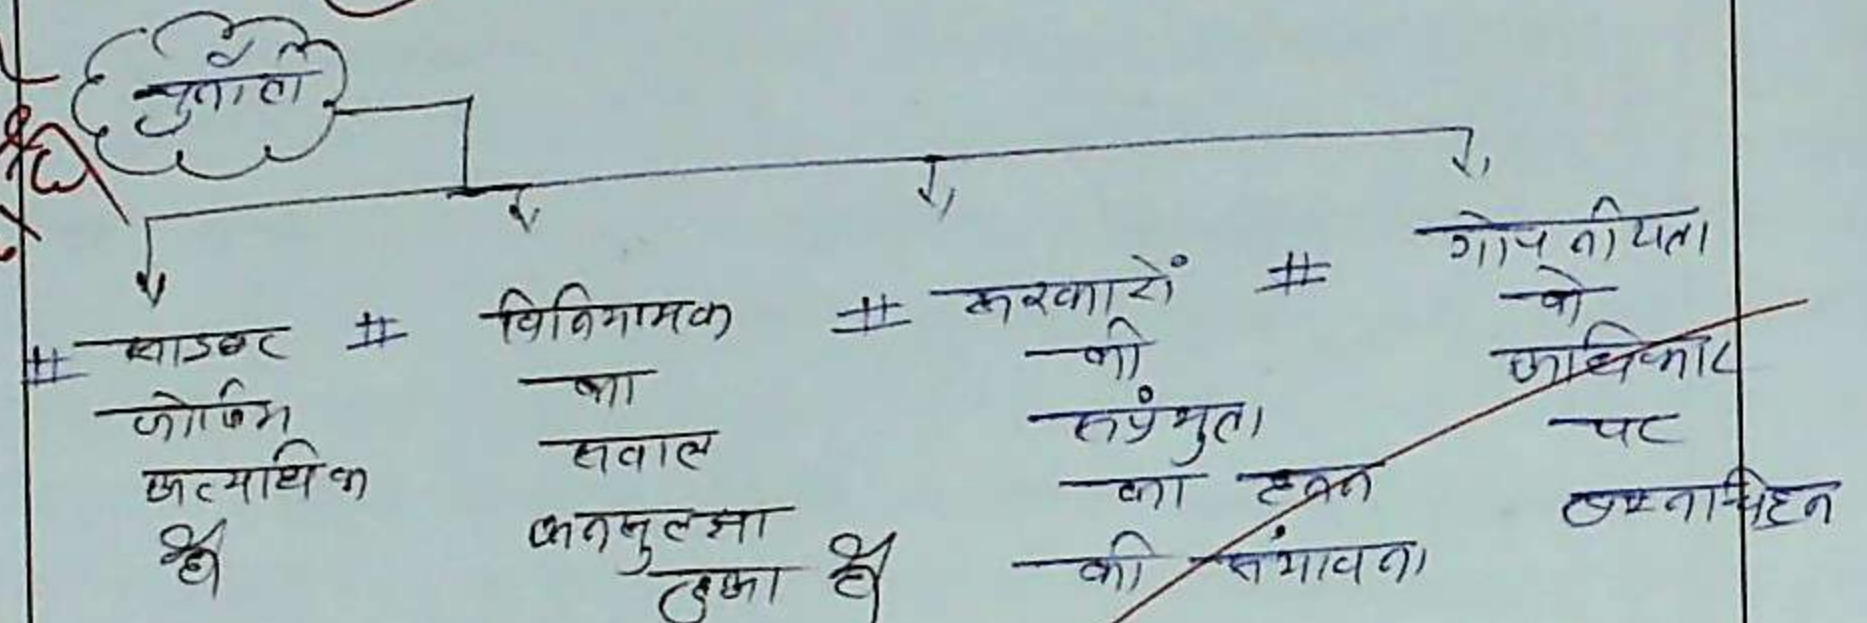 चुनौती
# साइबर
जोखिम
अत्यधिक
है
# विनियामक
का
सवाल
अनसुलझा
हुआ है
# सरकारों
की
सप्रंभुता
का हनन
की संभावना
# गोपनीयता
के
अधिकार
पर
प्रश्नचिह्न